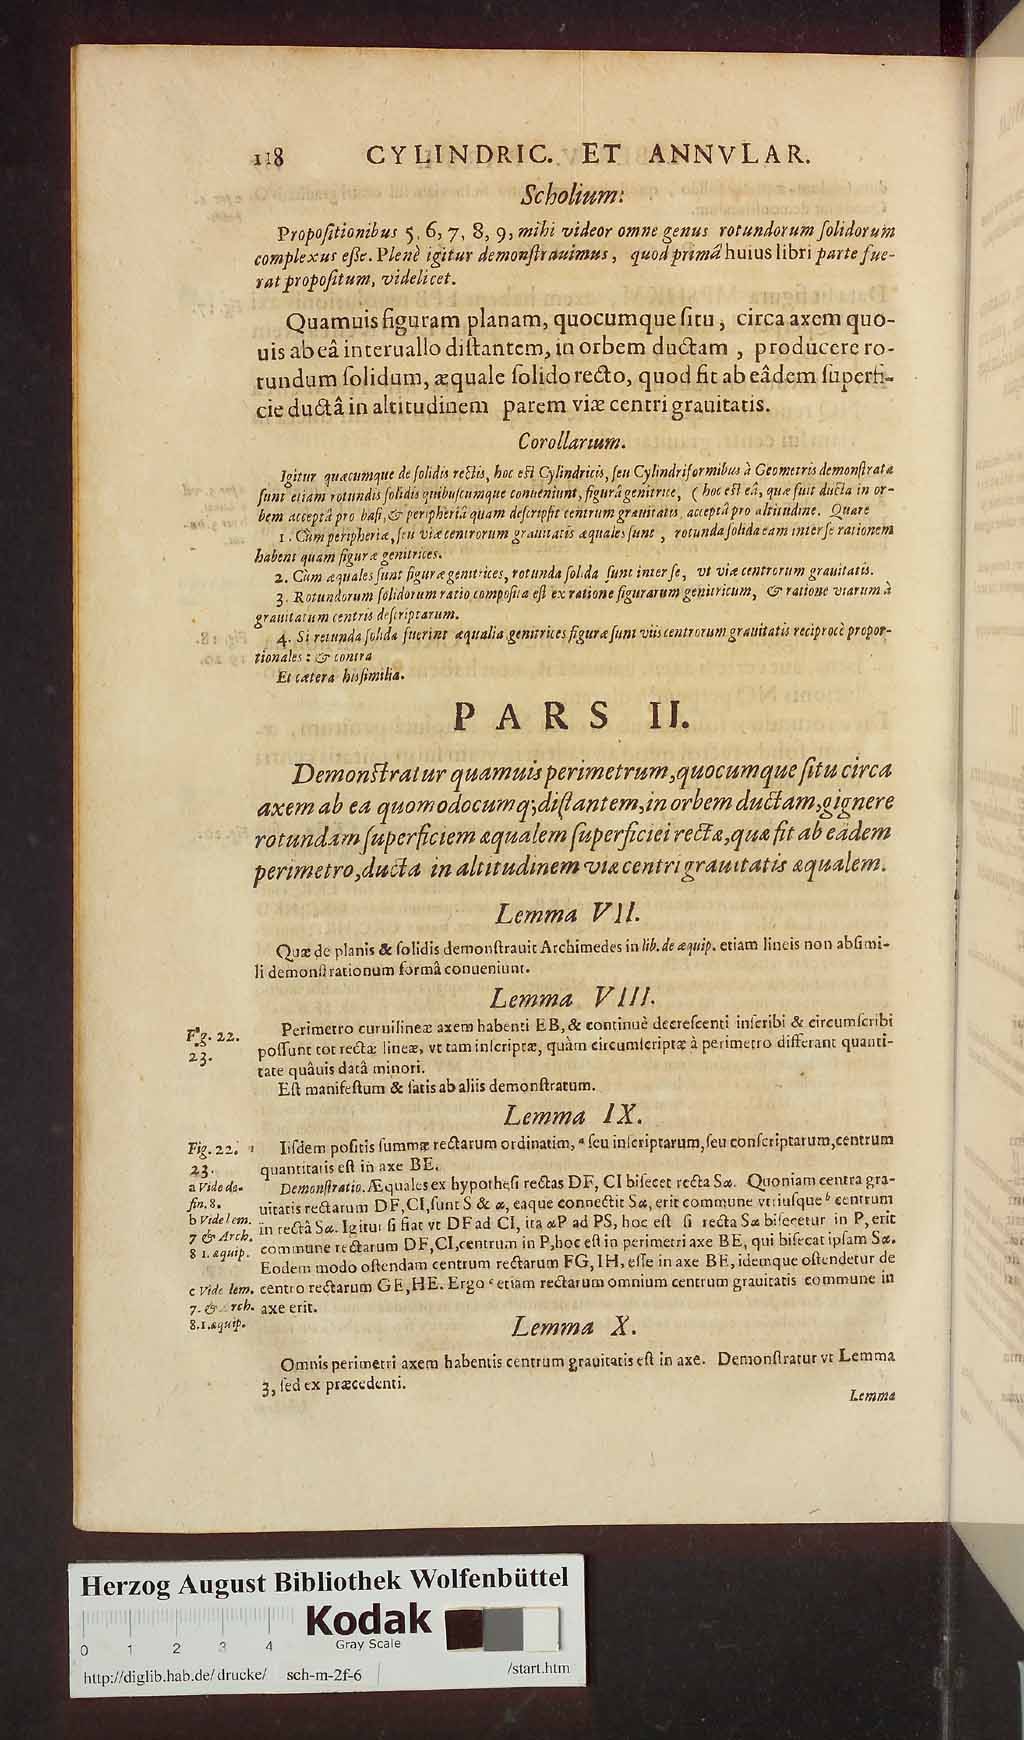 118 CYLINDRIC. ET ANNVLAR.
Scholium:
Propoſitionibus 5, 6, 7, 8, 9, mihi videor omne genus rotundorum ſolidorum
complexus eſſe. Plenè igitur demonſtrauimus, quod primâ huius libri parte fue-
rat propoſitum, videlicet.
Quamuis figuram planam, quocumque ſitu, circa axem quo-
uis ab eâ interuallo diſtantem, in orbem ductam, producere ro-
tundum ſolidum, æquale ſolido recto, quod fit ab eâdem ſuperfi-
cie ductâ in altitudinem parem viæ centri grauitatis.
Corollarium.
Igitur quæcumque de ſolidis rectis, hoc eſt Cylindricis, ſeu Cylindriformibus à Geometris demonſtrata
ſunt etiam rotundis ſolidis quibuſcumque conueniunt, figurâ genitrice, (hoc eſt eâ, quæ fuit ducta in or-
bem acceptâ pro baſi, & peripheriâ quam deſcripſit centrum grauitatis, acceptâ pro altitudine. Quare
1. Cùm peripheriæ, ſeu viæ centrorum grauitatis æquales ſunt, rotunda ſolida eam inter ſe rationem
habent quam figuræ genitrices.
2. Cùm æquales ſunt figuræ genitrices, rotunda ſolida ſunt inter ſe, vt viæ centrorum grauitatis.
3. Rotundorum ſolidorum ratio compoſita eſt ex ratione figurarum genitricum, & ratione viarum à
grauitatum centris deſcriptarum.
4. Si rotunda ſolida fuerint æqualia genitrices figuræ ſunt viis centrorum grauitatis reciprocè propor-
tionales: & contra
Et cætera his ſimilia.
PARS II.
Demonſtratur quamuis perimetrum, quocumque ſitu circa
axem ab ea quomodocumq; diſtantem, in orbem ductam, gignere
rotundam ſuperficiem æqualem ſuperficiei rectæ, quæ fit ab eâdem
perimetro, ducta in altitudinem viæ centri grauitatis æqualem.
Lemma VII.
Quæ de planis & ſolidis demonſtrauit Archimedes in lib. de æquip. etiam lineis non abſimi-
li demonſtrationum formâ conueniunt.
Lemma VIII.
Fig. 22.
23.
Perimetro curuilineæ axem habenti EB, & continuè decreſcenti inſcribi & circumſcribi
poſſunt tot rectæ lineæ, vt tam inſcriptæ, quàm circumſcriptæ à perimetro differant quanti-
tate quâuis datâ minori.
Eſt manifeſtum & ſatis ab aliis demonſtratum.
Lemma IX.
Fig. 22.
23.
a Vide de-
fin. 8.
b Vide lem.
7 & Arch.
8 1. æquip.
c Vide lem.
7. & Arch.
8.1.æquip.
Iiſdem poſitis ſummæ rectarum ordinatim, a ſeu inſcriptarum, ſeu conſcriptarum, centrum
quantitatis eſt in axe BE.
Demonſtratio. Æquales ex hypotheſi rectas DF, CI biſecet recta Sα. Quoniam centra gra-
uitatis rectarum DF, CI, ſunt S & α, eaque connectit Sα, erit commune vtriuſque b centrum
in rectâ Sα. Igitur ſi fiat vt DF ad CI, ita αP ad PS, hoc eſt ſi recta Sα biſecetur in P, erit
commune rectarum DF, CI, centrum in P, hoc eſt in perimetri axe BE, qui biſecat ipſam Sα.
Eodem modo oſtendam centrum rectarum FG, IH, eſſe in axe BE, idemque oſtendetur de
centro rectarum GE, HE. Ergo c etiam rectarum omnium centrum grauitatis commune in
axe erit.
Lemma X.
Omnis perimetri axem habentis centrum grauitatis eſt in axe. Demonſtratur vt Lemma
3, ſed ex præcedenti.
Lemma
Herzog August Bibliothek Wolfenbüttel
Kodak
Gray Scale
0 1 2 3 4
http://diglib.hab.de/drucke/ sch-m-2f-6 /start.htm